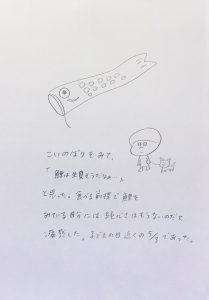 こいのぼりをみて、
「鯉は失費そうだなぁ…」
と思った。食べる前提で鯉を
みている自分には純心さはもうないのだと
痛感した。子どもの日近くの5/3であった。